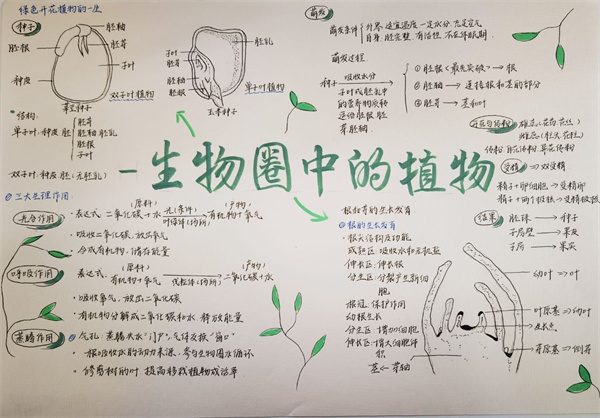 绿色开花植物的一生
种子
胚轴
胚根
胚芽
子叶
种皮
双子叶植物
菜豆种子
胚乳
子叶
胚芽
胚轴
胚根
单子叶植物
玉米种子
结构:
单子叶:种皮 胚
胚芽
胚轴 胚乳
胚根
子叶
双子叶:种皮 胚(无胚乳)
萌发
萌发条件
外界:适宜温度 一定水分 充足空气
自身:胚完整 有活性 不在休眠期
萌发过程:
种子
吸收水分
子叶或胚乳中
的营养物质转
运给胚根 胚
芽 胚轴
①胚根<最先突破>→根
②胚轴→连接根和茎的部分
③胚芽→茎和叶
开花与传粉
传粉
受精
⇒双受精
精子+卵细胞⇒受精卵
结果
胚珠→种子
子房壁→果皮
子房→果实
一生物圈中的植物
三大生理作用:
光合作用
(原料)
(产物)
表达式:二氧化碳+水
光(条件)
叶绿体(场所)
有机物+氧气
吸收二氧化碳,放出氧气
合成有机物,储存能量
呼吸作用
(原料)
(产物)
表达式:有机物+氧气
线粒体(场所)
二氧化碳+水
吸收氧气,放出二氧化碳
有机物分解成二氧化碳和水 释放能量
蒸腾作用
气孔:蒸腾失水"门户",气体交换"窗口"
根吸收水的动力来源,参与生物圈水循环
修剪树的叶 提高移栽植物成活率
根的生长发育
根尖结构及功能
成熟区:吸收水和无机盐
伸长区:伸长根
分生区:分裂产生新细
胞
根冠:保护作用
幼根生长
分生区:增加细胞
伸长区:增大细胞体
积
茎←芽轴
幼叶→叶
叶原基→幼叶
生长点
芽原基→侧芽